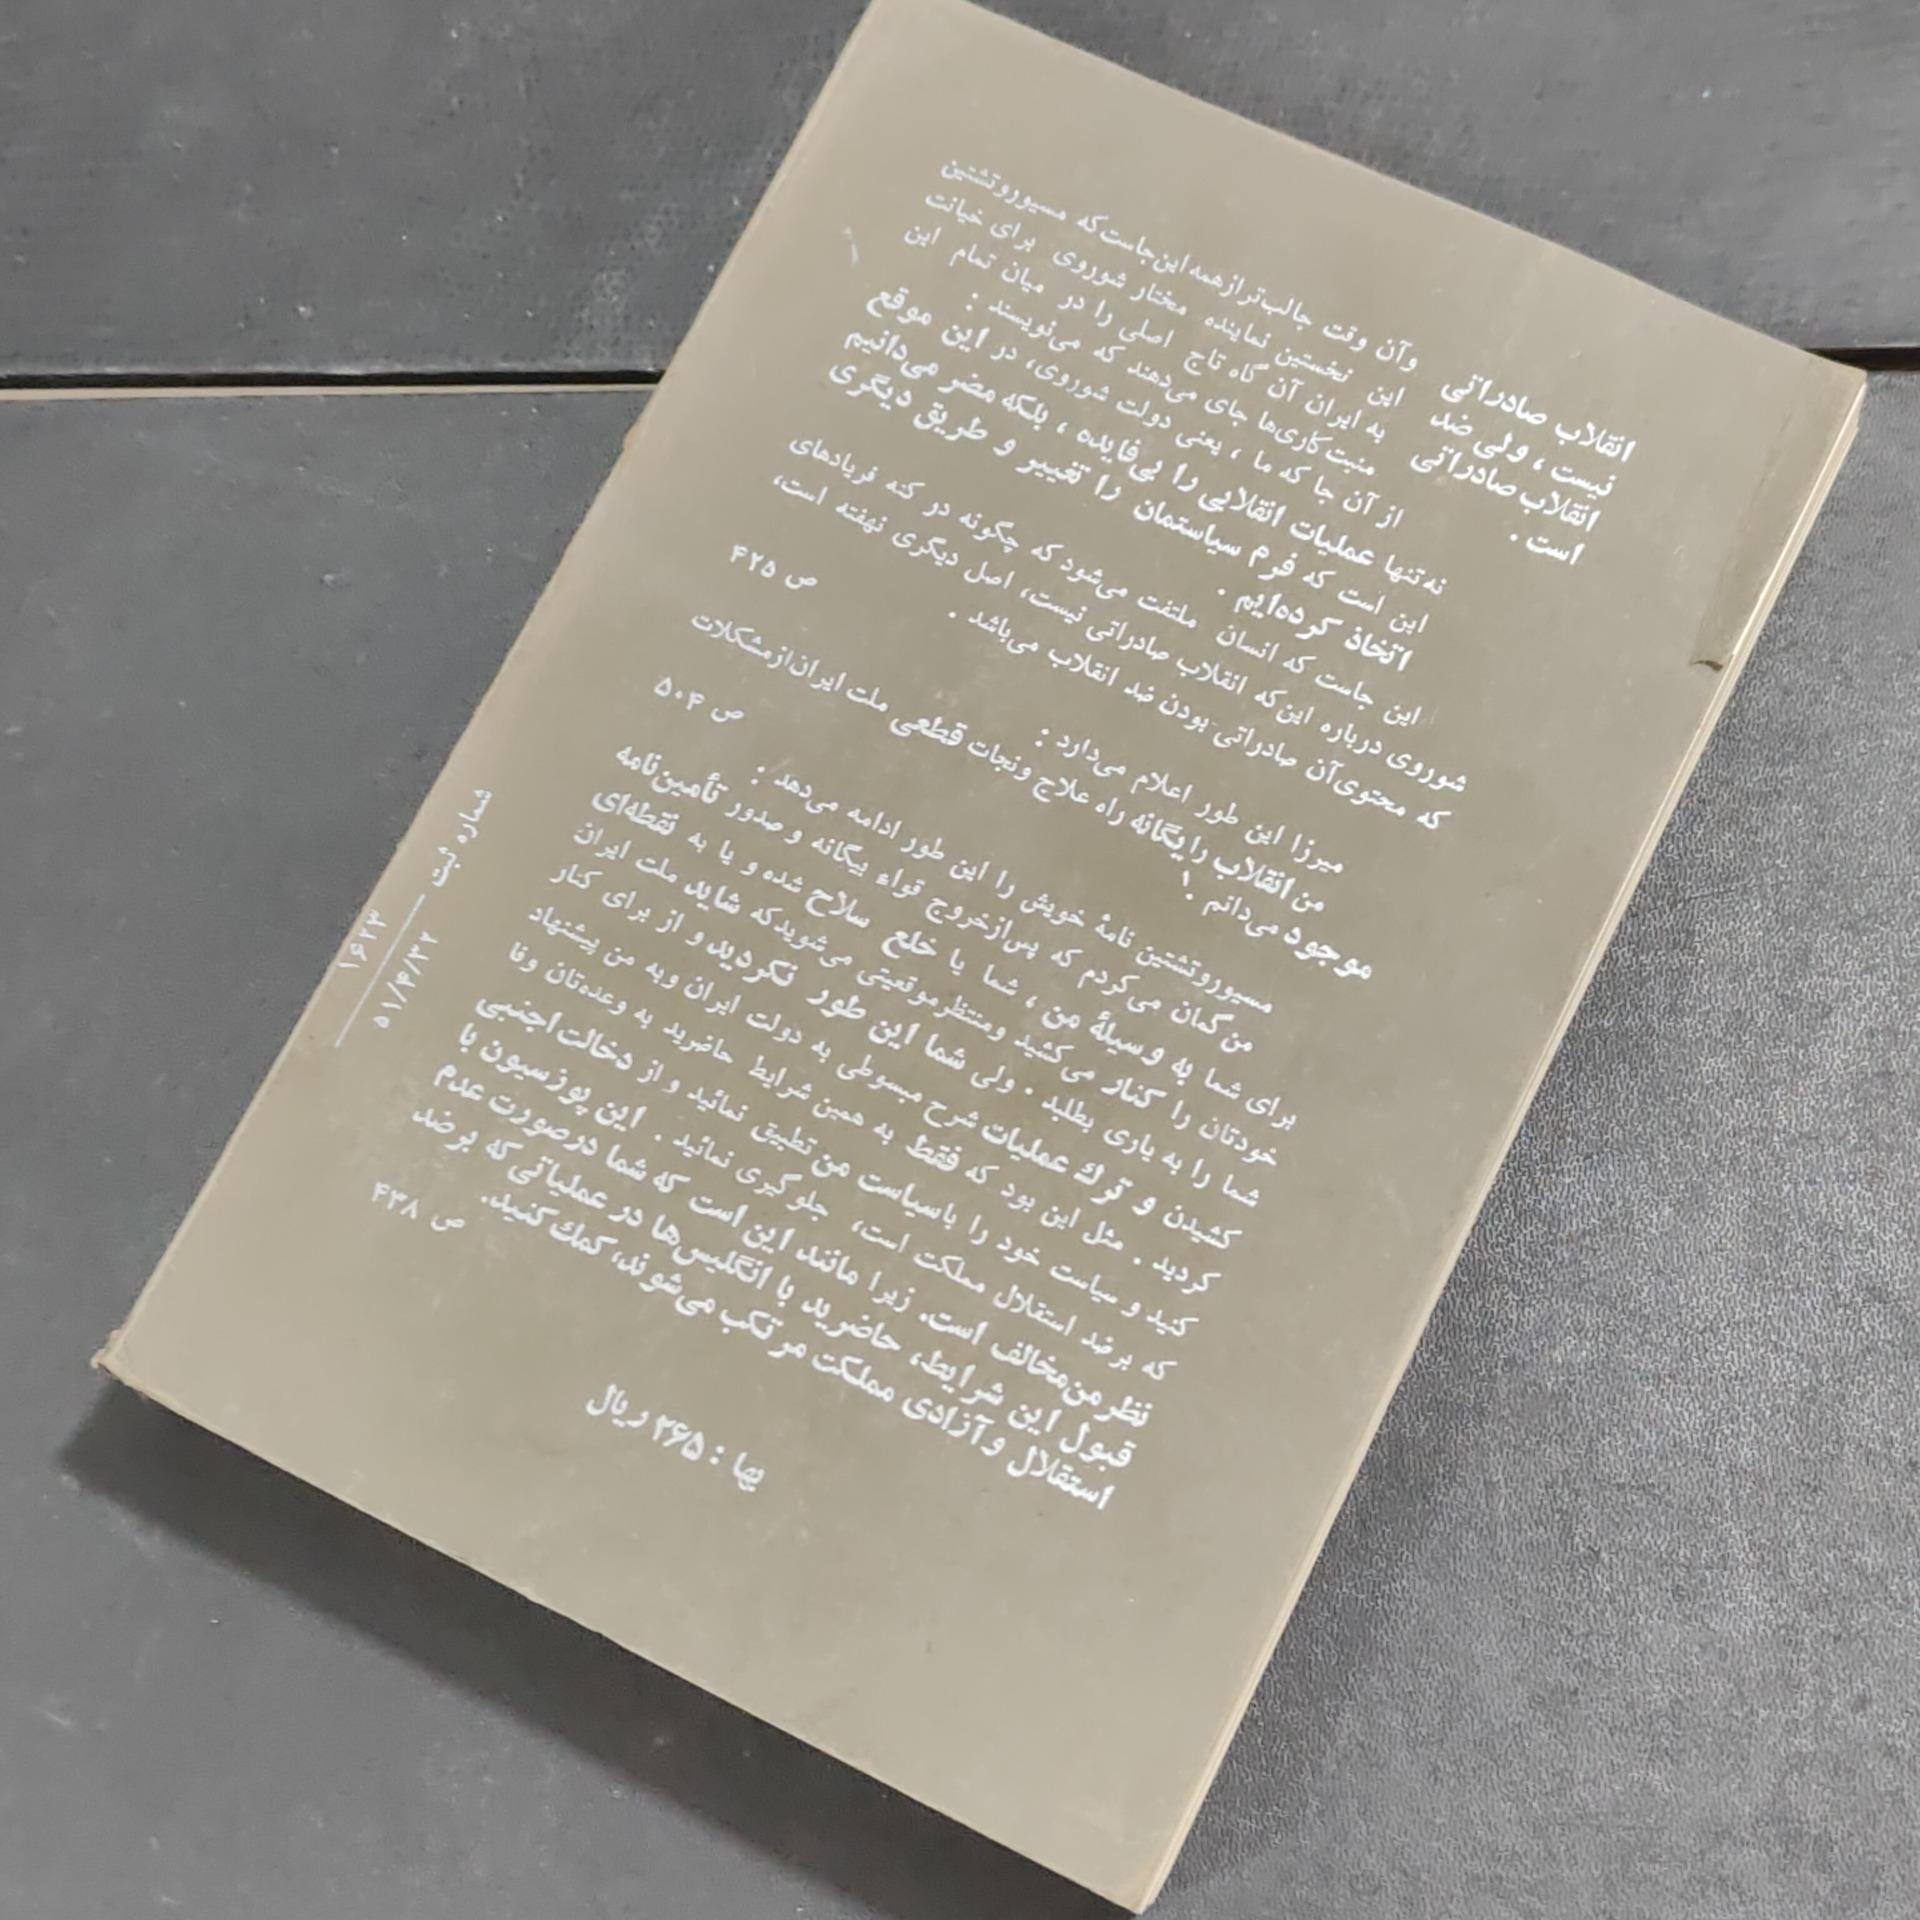 انقلاب صادراتی
نیست ، ولی ضد
انقلاب صادراتی
است .
وآن وقت جالب‌تر از همه این‌جاست که مسیوروتشتین
این نخستین نماینده مختار شوروی برای خیانت
به ایران آن گاه تاج اصلی را در میان تمام این
منبت‌کاری‌ها جای می‌دهند که می‌نویسند :
از آن جا که ما ، یعنی دولت شوروی، در این موقع
نه تنها عملیات انقلابی را بی‌فایده ، بلکه مضر می‌دانیم
این است که فرم سیاستمان را تغییر و طریق دیگری
اتخاذ کرده‌ایم .
این جاست که انسان ملتفت می‌شود که چگونه در کنه فریادهای
شوروی درباره این‌که انقلاب صادراتی نیست، اصل دیگری نهفته است،
که محتوی‌آن صادراتی بودن ضد انقلاب می‌باشد .
ص ۴۲۵
میرزا این طور اعلام می‌دارد :
من انقلاب را یگانه راه علاج و نجات قطعی ملت ایران از مشکلات
موجود می‌دانم .۱
ص ۵۰۴
مسیوروتشتین نامهٔ خویش را این طور ادامه می‌دهد :
من گمان می‌کردم که پس‌از خروج قواء بیگانه و صدور تأمین‌نامه
برای شما به وسیلهٔ من ، شما یا خلع سلاح شده و یا به نقطه‌ای
خودتان را کنار می‌کشید و منتظر موقعیتی می‌شوید که شاید ملت ایران
شما را به یاری بطلبد . ولی شما این طور نکردید و از برای کنار
کشیدن و ترك عملیات شرح مبسوطی به دولت ایران و به من پیشنهاد
کردید . مثل این بود که فقط به همین شرایط حاضرید به وعده‌تان وفا
کنید و سیاست خود را با سیاست من تطبیق نمائید و از دخالت اجنبی
که بر ضد استقلال مملکت است، جلوگیری نمائید . این پوزسیون با
نظر من مخالف است. زیرا مانند این است که شما در صورت عدم
قبول این شرایط، حاضرید با انگلیس‌ها در عملیاتی که بر ضد
استقلال و آزادی مملکت مرتکب می‌شوند، کمك کنید.
ص ۴۳۸
بها : ۲۶۵ ریال
شماره ثبت
۱۶۲۳
۵۱/۴/۳۲